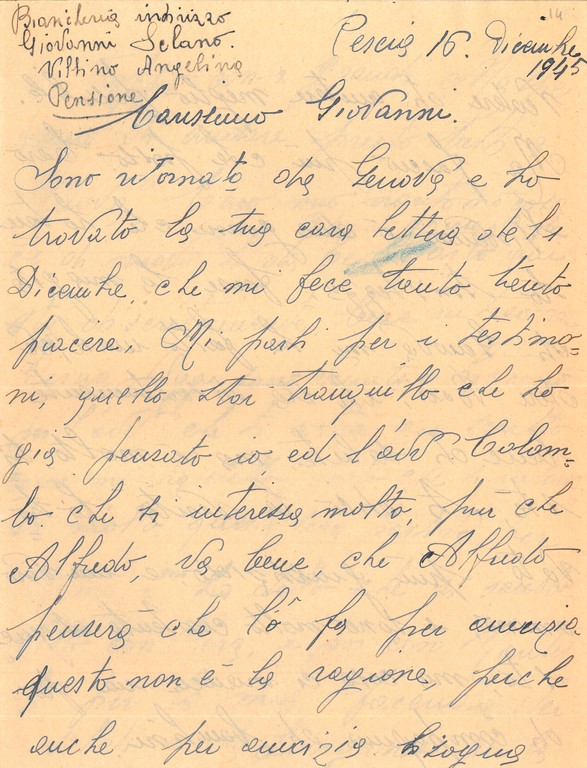 14
Biancheria indirizzo
Giovanni Selano.
Villino Angelina
Pensione
Pescia 16. Dicembre
1945
Carissimo Giovanni.
Sono ritornato da Genova e ho
trovato la tua cara lettera del 1
Dicembre, che mi fece tanto tanto
piacere. Mi parli per i testimo=
ni, quello stai tranquillo che ho
già pensato io ed l'avv. Colom=
bo. che si interessa molto, più che
Alfredo, va bene, che Alfredo
penserà che lo fa per amicizia
questo non è la ragione, perche
anche per amicizia bisogna